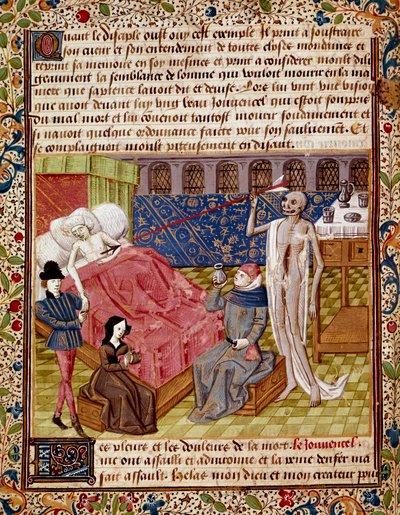 Quant le disciple oust ouy cest exemple Il print a soustraire
son cueur et son entendement de toutes choses mondaines et
reprint sa memoire en soy mesmes et print a considerer moult dili
gemment la semblance de lomme qui vouloit mourir en la ma
niere que sapience lauoit dit et deuise. Lors lui vint vne visio
que deuant luy vng beau Jouuencel qui estoit
mal mort et lui conuenoit tantost mourir soudainement et
nauoit quelque ordonnance faicte pour son sauluement. Et
se complaignoit moult piteusement en disant
Les pleurs et les douleurs de la mort. le Jouuencel.
me ont assailli et aduironne et la peine denfer ma
fait assault. Helas mon dieu et mon createur pour